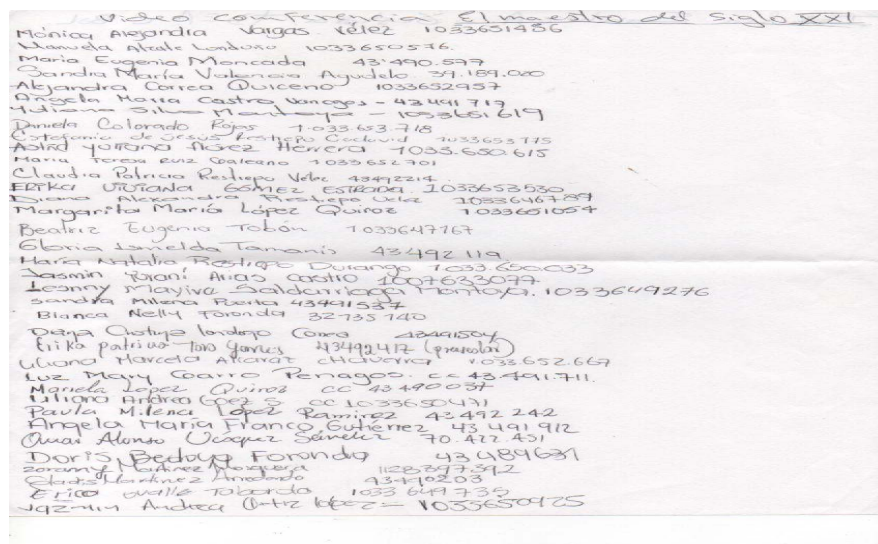 Video conferencia El maestro del Siglo XXI
Mónica Alejandra Vargas Vélez 1033651456
Manuela Alzate Londoño 1033650576.
Maria Eugenia Moncada 43'490.577
Sandra María Valencia Agudelo 39.189.020
Alejandra Correa Quiceno 1033652957
Angela Maria Castro Vanegas - 43491719
Yuliana Silva Montoya - 1033651619
Daniela Colorado Rojas 1.033.653.718
Estefania de Jesus Restrepo 1033653775
Astrid Yuliana Florez Herrera 1033.650.615
Maria Teresa Ruiz Galeano 1033652701
Claudia Patricia Restrepo Velez 43492214
ERIKA VIVIANA GÓMEZ ESTRADA 1033653530
Diana Alexandra Restrepo Velez 1033646789
Margarita María López Quiroz 1033651054
Beatriz Eugenia Tobón 1033647167
Gloria Ismelda Tamanis 43492119
María Natalia Restrepo Durango 1.033.650.033
Jasmin Yorani Arias Castro 1007633077
Leanny Mayiva Saldarriaga Montoya. 1033649276
Sandra Milena Puerta 43491537
Blanca Nelly Foronda 32735140
Londoño Correa 43491504
Erika patricia Toro Gomes 43492417 (preescolar)
Liliana Marcela Alcaraz Chavarria 1.033.652.667
Luz Mary Coarro Penagos. cc 43.491.711.
Mariela López Quiroz cc 43490037
Liliana Andrea Goez S cc 1033650471
Paula Milena López Ramirez 43492242
Angela María Franco Gutiérrez 43 491 912
Omar Alonso Vásquez Sánchez 70.422.451
Doris Bedoya Foronda 43489631
Zoranny Martinez Mosquera 1128397392
Gladis Martinez Arredondo 43490203
Erica ovalle Taborda 1033 649735
Jazmin Andrea Ortiz López = 1033650925